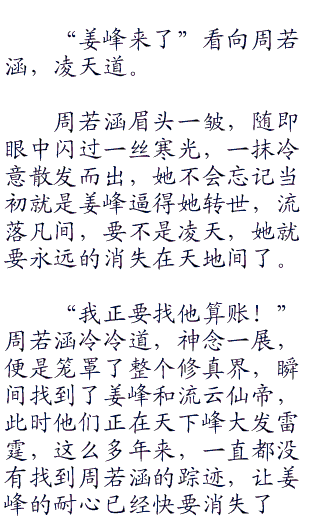 “姜峰来了”看向周若
涵，凌天道。
周若涵眉头一皱，随即
眼中闪过一丝寒光，一抹冷
意散发而出，她不会忘记当
初就是姜峰逼得她转世，流
落凡间，要不是凌天，她就
要永远的消失在天地间了。
“我正要找他算账！”
周若涵冷冷道，神念一展，
便是笼罩了整个修真界，瞬
间找到了姜峰和流云仙帝，
此时他们正在天下峰大发雷
霆，这么多年来，一直都没
有找到周若涵的踪迹，让姜
峰的耐心已经快要消失了